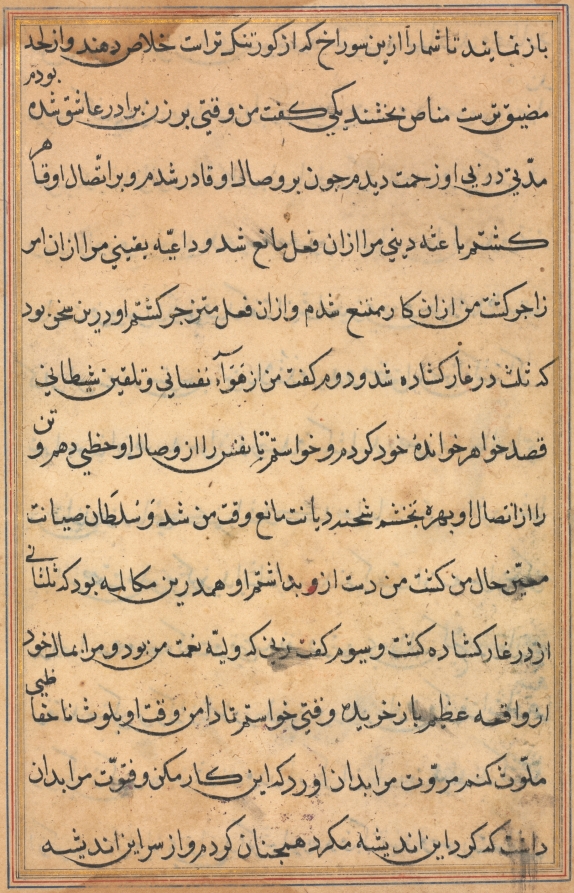 باز نمایند تا شما را ازین سوراخ که از کور تنک تر است خلاص دهند و از لحد
مضیق ترست مناص بخشند یکی کفت من وقتی بر زن برادر عاشق شده بودم
مدّتی در پی او زحمت دیدم جون بر وصال او قادر شدم و بر اتّصال او قاهر
کشتم باعثه دینی مرا ازان فعل مانع شد و داعیه یقینی مرا ازان امر
زاجر کشت من ازان کار ممتنع شدم و ازان فعل متزجر کشتم او درین سخن بود
که ثلث در غار کشاده شد و دوم کفت من از هوآء نفسانی و تلقین شیطانی
قصد خواهر خواندۀ خود کردم و خواستم تا نفس را از وصال او حظی دهم و تن
را از اتصال او بهره بخشم شحنه دیانت مانع وقت من شد و سلطان صیانت
حال من کشت من دست ازو بداشتم او همدرین مکالمه بود که ثلث ثانی
از در غار کشاده کشت و سیوم کفت زنی که ولیّه نعمت من بود و مرا بمال خود
از واقعه عظیم باز خریده وقتی خواستم تا دامن وقت او بلوث ناحفاظی
ملوّث کنم مروّت مرا بدان اورد که این کار مکن و فتوّت مرا بدان
داشت که کرد این اندیشه مکرد همجنان کردم و از سر این اندیشه